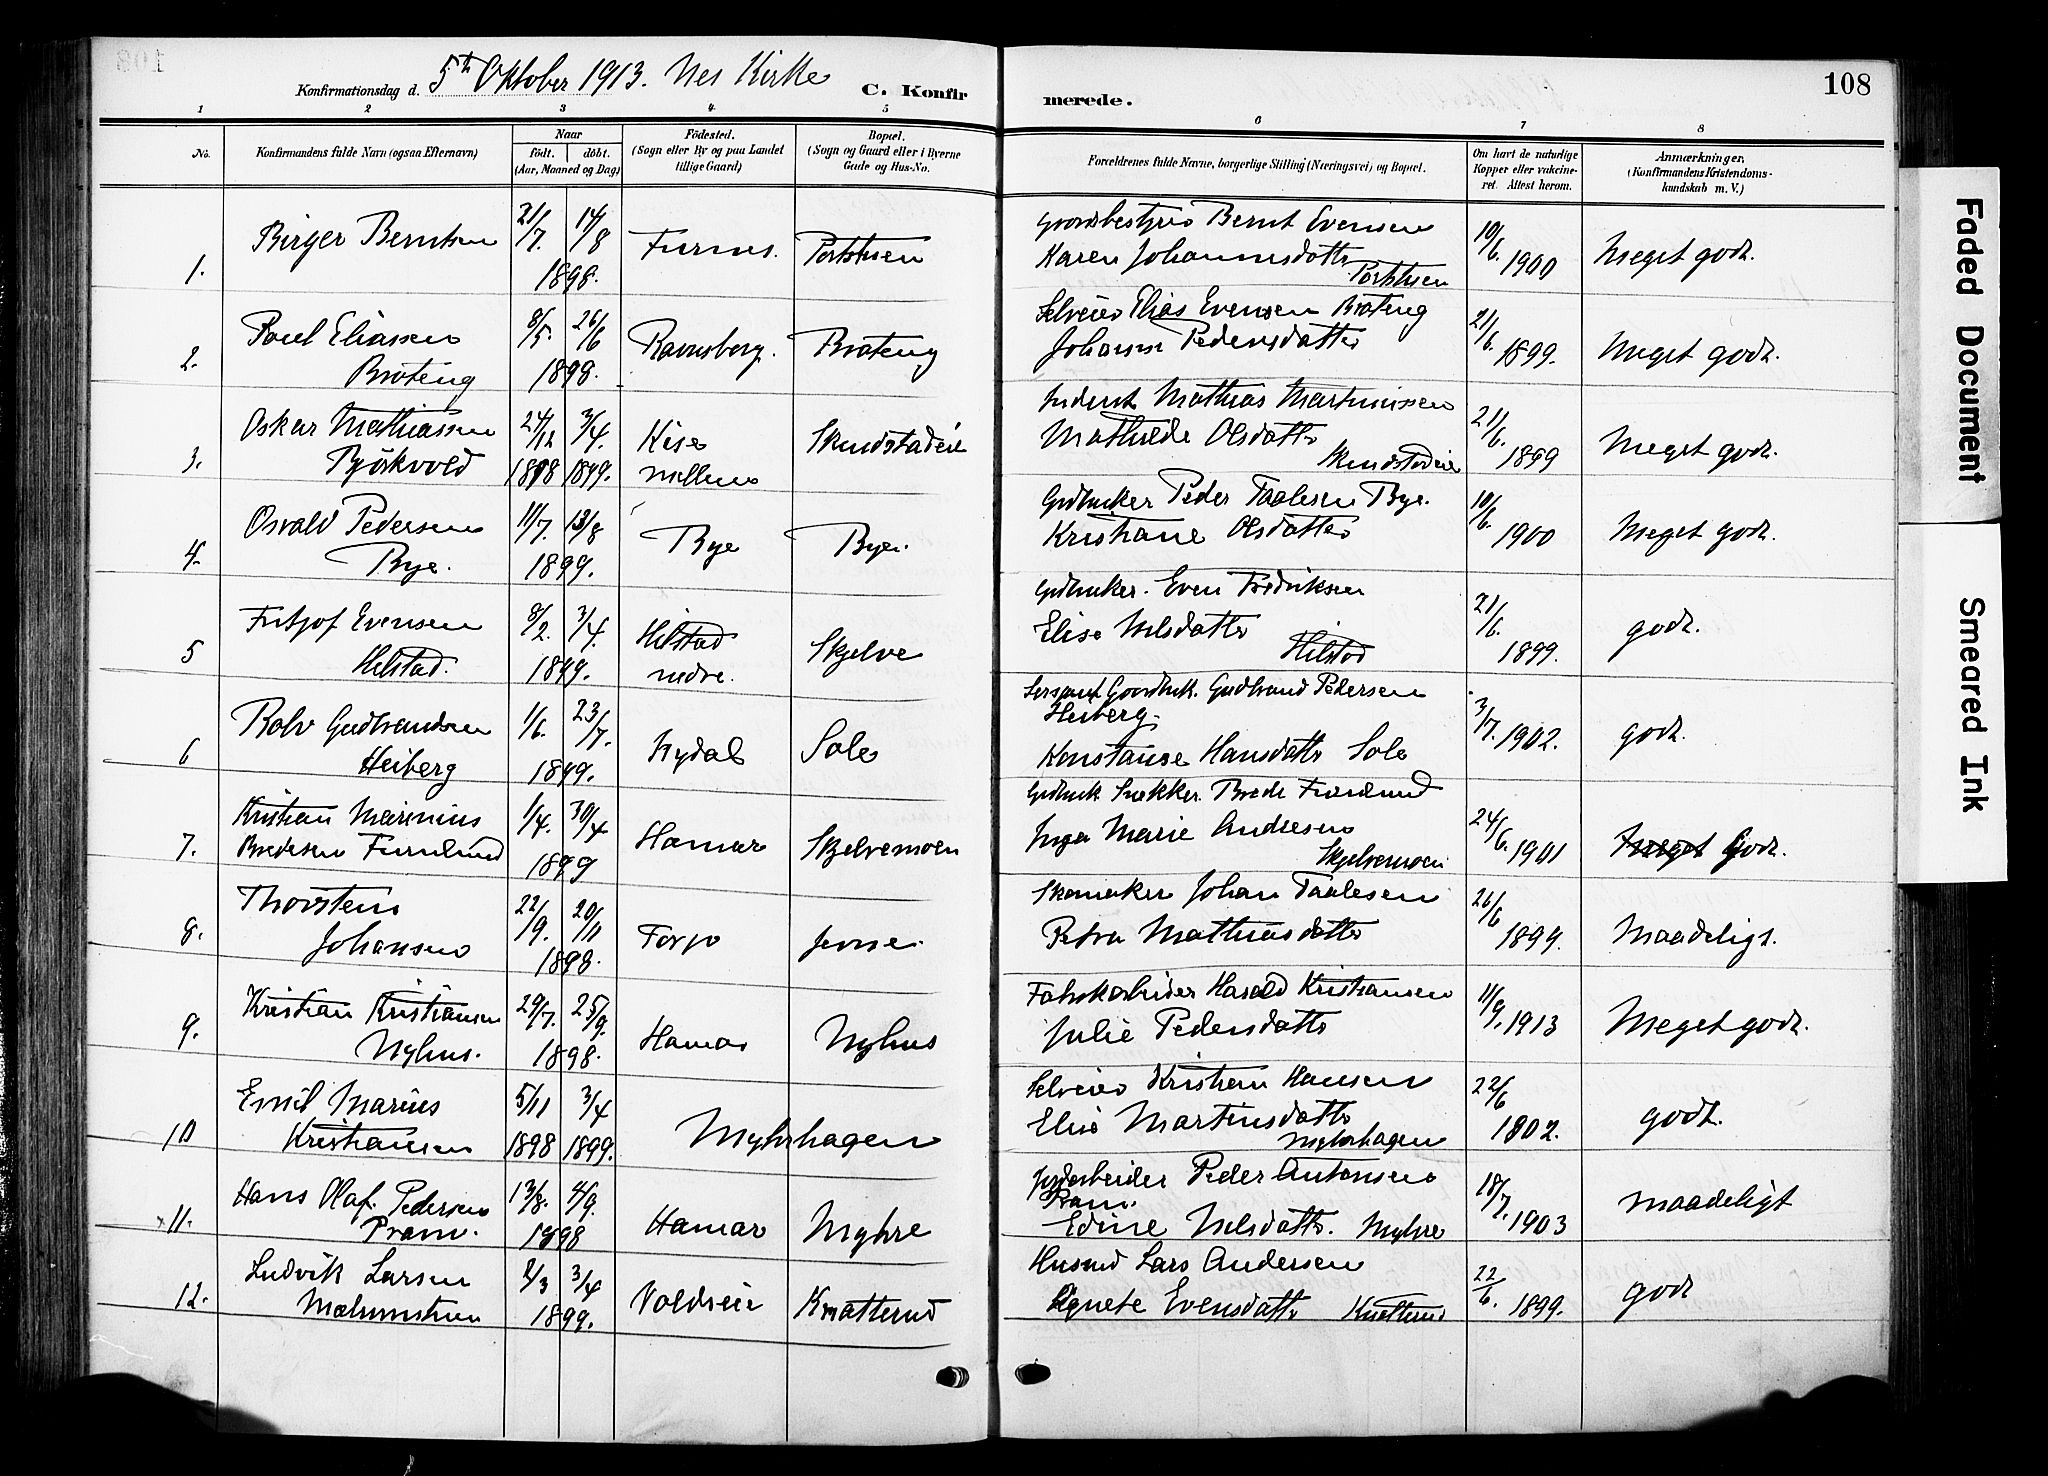 108
Konfirmationsdag d. 5te Oktober 1913. Nes Kirke
C. Konfirmerede.
1 2 3 4 5 6 7 8
No.
Konfirmandens fulde Navn (ogsaa Efternavn)
Naar
födt. döbt.
(Aar, Maaned og Dag)
Födested.
(Sogn eller By og paa Landet
tillige Gaard)
Bopæl.
(Sogn og Gaard eller i Byerne
Gade og Hus-No.
Forældrenes fulde Navne, borgerlige Stilling (Næringsvei) og Bopæl.
Om havt de naturlige
Kopper eller vakcine-
ret. Attest herom.
Anmærkninger,
(Konfirmandens Kristendoms-
kundskab m. V.)
1. Birger Berntsen 21/7. 14/8 1898. Furnes. Portstuen
Bernt Evensen
Karen Johannesdatter Portstuen 19/6. 1900 Meget godt.
2. Paul Eliassen
Bråteng 8/5. 26/6 1898. Ravnsberg. Bråteng
Selveier Elias Evensen Bråteng
Johanne Pedersdatter 21/6. 1899. Meget godt.
3. Oskar Mathiassen
Björkvold 24/12 1898 3/4. 1899. Kise
mellem Skundstadeie
Inderst Mathias Martinissen
Mathilde Olsdatter
Skundstadeie 21/6. 1899 Meget godt.
4. Osvald Pedersen
Bye. 11/7. 13/8 1899. Bye Bye.
Gdbruker Peder Taalesen Bye.
Kristiane Olsdatter 10/6. 1900 Meget godt.
5 Fritjof Evensen
Hilstad. 8/2. 3/4. 1899. Hilstad
nedre. Skjelve
Gdbruker. Even Fredriksen
Elise Nilsdatter
Hilstad 21/6. 1899. godt.
6 Rolv Gudbrandsen
Heiberg 1/6. 23/7. 1899. Nydal Solo
Sersjant Gaardbruk. Gudbrand Pedersen
Heiberg.
Konstanse Hansdatter Solo 3/7. 1902. godt.
7. Kristian Marinius
Bredesen Furulund 1/4. 30/4 1899 Hamar Skjelvemoen
Gdbruk Snekker. Brede Furulund
Inga Marie Andresen
Skjelvemoen 24/6. 1901 Meget Godt.
8. Thorsten
Johansen 22/9. 20/11 1898. Torp
Skomaker Johan Taalesen
Petra Mathiasdatter 26/6 1899. Maadeligt.
9. Kristian Kristiansen
Nyhus. 29/7. 25/9. 1898. Hamar Nyhus
Fabrikarbeider Harald Kristiansen
Julie Pedersdatter 11/9. 1913 Meget godt.
10 Emil Marius
Kristiansen 5/11 1898 3/4 1899. Myhrhagen
Selveier Kristian Hansen
Elise Martinsdatter
Myhrhagen 22/6 1802. godt.
11. Hans Olaf Pedersen
Pram. 13/8. 4/9. 1898 Hamar Myhre
Jordarbeider Peder Antonsen
Pram.
Edine Nilsdatter. Myhre 18/7. 1903 maadeligt
12. Ludvik Larsen
Malumstuen 2/3 3/4 1899. Voldseie Knatterud
Husmd Lars Andersen
Agnete Evensdatter Knatterud 22/6. 1899. godt
Faded Document
Smeared Ink